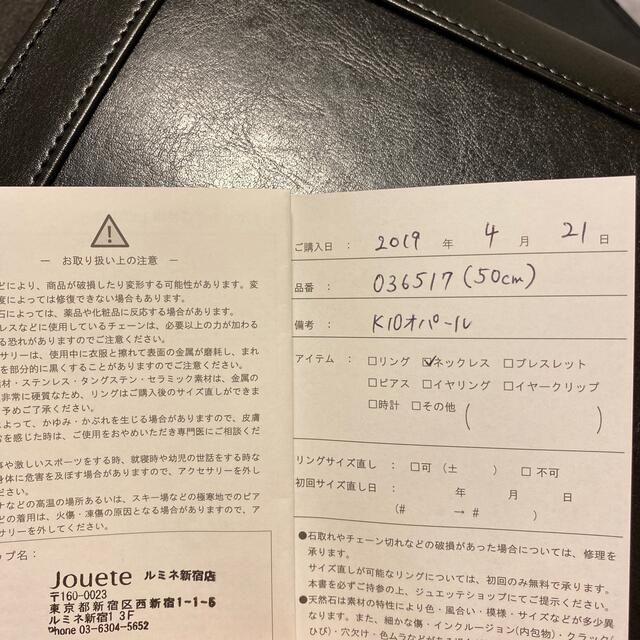 ― お取り扱い上の注意 ―
どにより、商品が破損したり変形する可能性があります。変
度によっては修復できない場合もあります。
石によっては、薬品や化粧品に反応する場合があります。
レスなどに使用しているチェーンは、必要以上の力が加わる
る恐れがありますのでご注意ください。
サリーは、使用中に衣服と擦れて表面の金属が磨耗し、まれ
を部分的に黒くすることがありますのでご注意ください。
素材・ステンレス・タングステン・セラミック素材は、金属の
非常に硬質なため、リングはご購入後のサイズ直しができま
予めご了承ください。
よって、かゆみ・かぶれを生じる場合がありますので、皮膚
常を感じた時は、ご使用をおやめいただき専門医にご相談くだ
事や激しいスポーツをする時、就寝時や幼児の世話をする時な
身体に危害を及ぼす場合がありますので、アクセサリーを外し
ナなどの高温の場所あるいは、スキー場などの極寒地でのピア
どの着用は、火傷・凍傷の原因となる場合がありますので、ア
サリーを外してください。
ップ名:
Jouete ルミネ新宿店
〒160-0023
東京都新宿区西新宿1-1-5
ルミネ新宿1 3F
Phone 03-6304-5652
ご購入日 : 2019 年 4 月 21 日
品番 : 036517(50cm)
備考 : K10オパール
アイテム : □リング ☑ネックレス □ブレスレット
□ピアス □イヤリング □イヤークリップ
□時計 □その他 ( )
リングサイズ直し : □可 (± ) □不可
初回サイズ直し日 : 年 月 日
(# → # )
●石取れやチェーン切れなどの破損があった場合については、修理を
承ります。
サイズ直しが可能なリングについては、初回のみ無料で承ります。
本書を必ずご持参の上、ジュエッテショップにてご提示ください。
●天然石は素材の特性により色・風合い・模様・サイズなどが多少異
なります。また、細かな傷・インクルージョン(内包物)・クラック(
ひび)・穴欠け・色ムラなどが